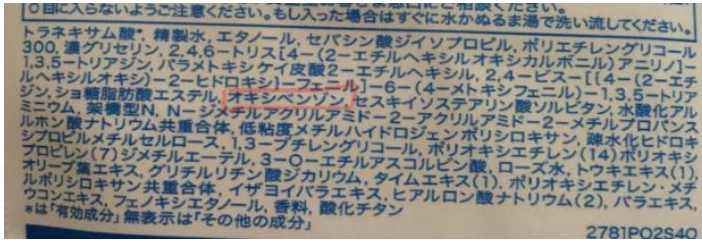 目に入らないようご注意ください。もし入った場合はすぐに水かぬるま湯で洗い流してください。
トラネキサム酸*, 精製水, エタノール, セバシン酸ジイソプロピル, ポリエチレングリコール
300, 濃グリセリン, 2,4,6-トリス[4-(2-エチルヘキシルオキシカルボニル)アニリノ]-
1,3,5-トリアジン, パラメトキシケイ皮酸2-エチルヘキシル, 2,4-ビス-[{4-(2-エチ
ルヘキシルオキシ)-2-ヒドロキシ}-フェニル]-6-(4-メトキシフェニル)-1,3,5-トリア
ジン, ショ糖脂肪酸エステル, オキシベンゾン, セスキイソステアリン酸ソルビタン, 水酸化アル
ミニウム, 架橋型N, N-ジメチルアクリルアミド-2-アクリルアミド-2-メチルプロパンス
ルホン酸ナトリウム共重合体, 低粘度メチルハイドロジェンポリシロキサン, 疎水化ヒドロキ
シプロピルメチルセルロース, 1,3-ブチレングリコール, ポリオキシエチレン(14)ポリオキシ
プロピレン(7)ジメチルエーテル, 3-O-エチルアスコルビン酸, ローズ水, トウキエキス(1),
オリーブ葉エキス, グリチルリチン酸ジカリウム, タイムエキス(1), ポリオキシエチレン・メチ
ルポリシロキサン共重合体, イザヨイバラエキス, ヒアルロン酸ナトリウム(2), バラエキス,
ウコンエキス, フェノキシエタノール, 香料, 酸化チタン
*は「有効成分」無表示は「その他の成分」
2781P02S40